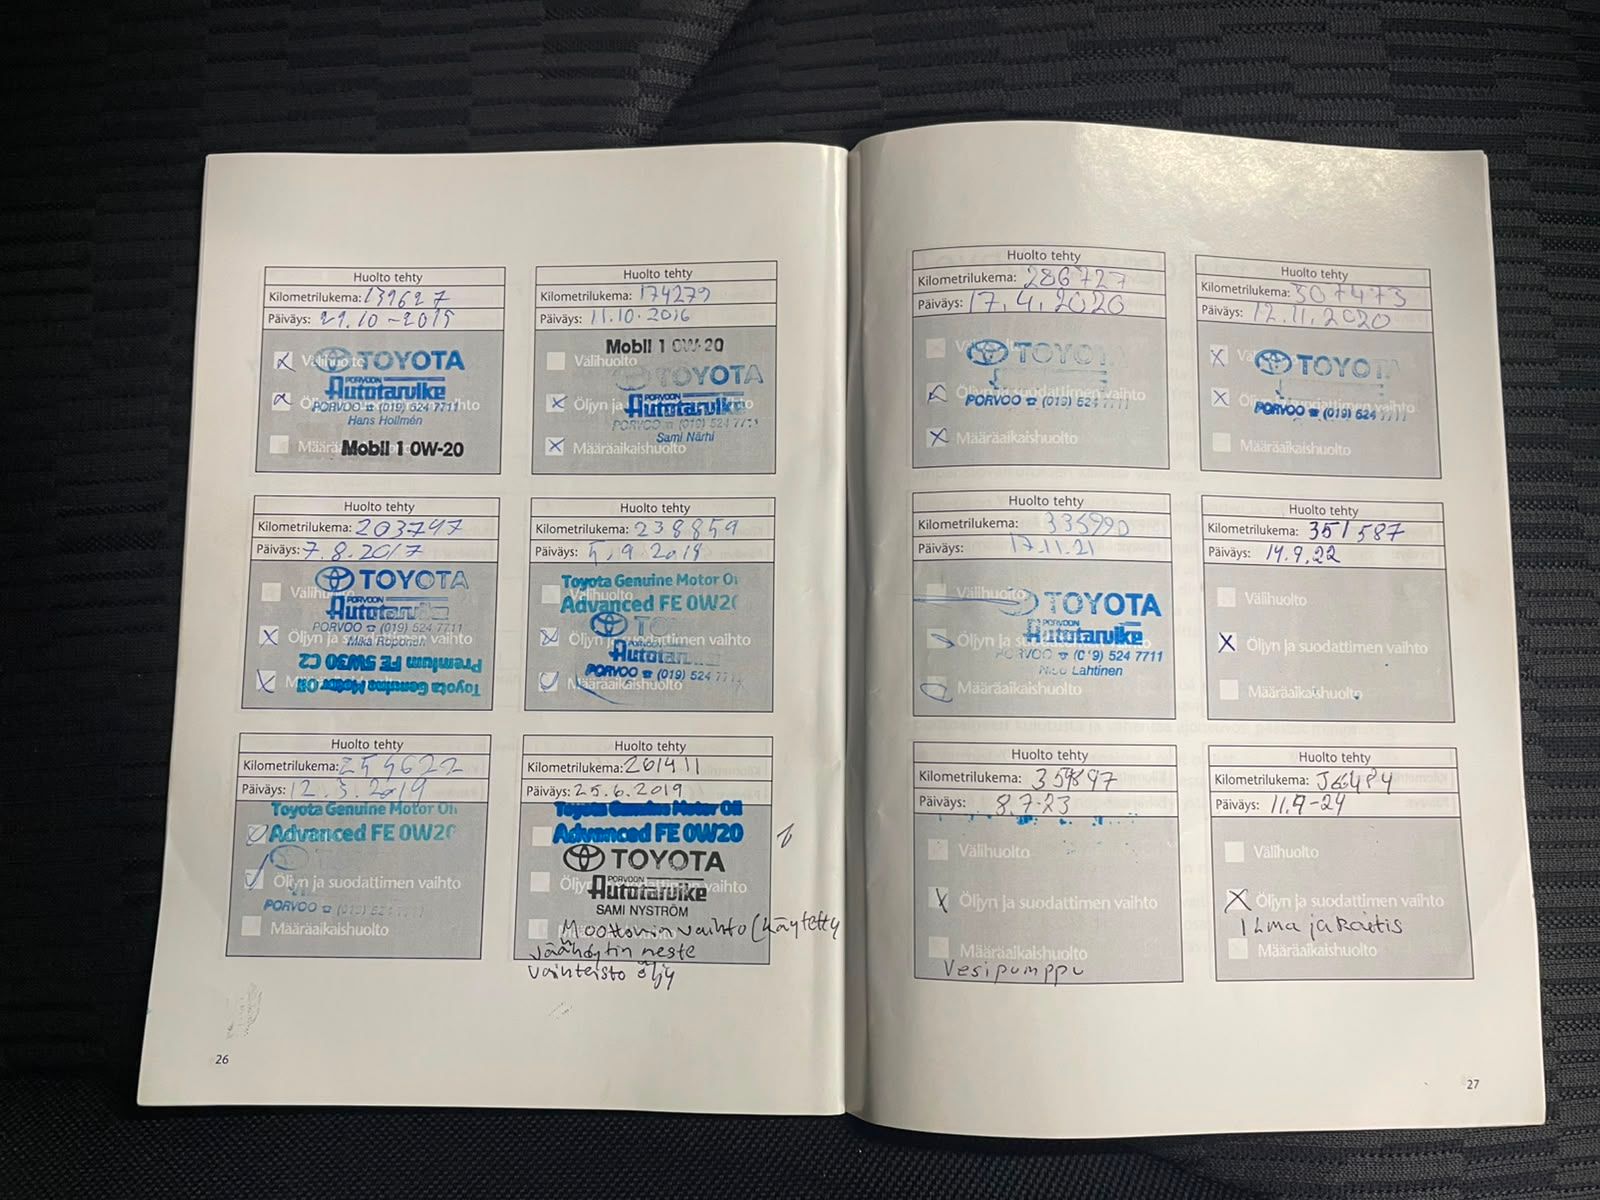 Huolto tehty
Kilometrilukema: 139627
Päiväys: 29.10-2015
Välihuolto
TOYOTA
PORVOON
Autotarvike
Öljyn ja suodattimen vaihto
PORVOO ☎ (019) 524 7711
Hans Hollmén
Määräaikaishuolto
Mobil 1 0W-20
Huolto tehty
Kilometrilukema: 174279
Päiväys: 11.10.2016
Mobil 1 0W-20
Välihuolto
TOYOTA
PORVOON
Autotarvike
Öljyn ja suodattimen vaihto
PORVOO ☎ (019) 524 7711
Sami Närhi
Määräaikaishuolto
Huolto tehty
Kilometrilukema: 203797
Päiväys: 7.8.2017
TOYOTA
Välihuolto
PORVOON
Autotarvike
PORVOO ☎ (019) 524 7711
Öljyn ja suodattimen vaihto
Mika Roponen
Määräaikaishuolto
Toyota Genuine Motor Oil
Premium FE 5W30 C2
Huolto tehty
Kilometrilukema: 238859
Päiväys: 5.9.2018
Toyota Genuine Motor Oi
Välihuolto
Advanced FE 0W20
TO
Öljyn ja suodattimen vaihto
Autotar
PORVOO ☎ (019) 524 7711
Määräaikaishuolto
Huolto tehty
Kilometrilukema: 254622
Päiväys: 12.3.2019
Toyota Genuine Motor Oil
Advanced FE 0W20
Öljyn ja suodattimen vaihto
PORVOO ☎ (019) 524 7711
Määräaikaishuolto
Huolto tehty
Kilometrilukema: 261411
Päiväys: 25.6.2019
Toyota Genuine Motor Oil
Advanced FE 0W20
TOYOTA
PORVOON
Autotarvike
Öljyn ja suodattimen vaihto
SAMI NYSTRÖM
Moottorin vaihto (käytetty
jäähdytin neste
vaihteisto öljy
26
Huolto tehty
Kilometrilukema: 286727
Päiväys: 17.4.2020
TOYOT
Öljyn ja suodattimen vaihto
PORVOO ☎ (019) 524 7711
Määräaikaishuolto
Huolto tehty
Kilometrilukema: 307473
Päiväys: 12.11.2020
TOYOT
Öljyn ja suodattimen vaihto
PORVOO ☎ (019) 524 7711
Määräaikaishuolto
Huolto tehty
Kilometrilukema: 335990
Päiväys: 17.11.21
Välihuolto
TOYOTA
PORVOON
Autotarvike
Öljyn ja suodattimen vaihto
PORVOO ☎ (019) 524 7711
Nico Lahtinen
Määräaikaishuolto
Huolto tehty
Kilometrilukema: 351587
Päiväys: 14.9.22
Välihuolto
Öljyn ja suodattimen vaihto
Määräaikaishuolto
Huolto tehty
Kilometrilukema:
Päiväys: 8.7.23
Välihuolto
Öljyn ja suodattimen vaihto
Määräaikaishuolto
Vesipumppu
Huolto tehty
Kilometrilukema:
Päiväys: 11.9-24
Välihuolto
Öljyn ja suodattimen vaihto
Ilma ja raitis
Määräaikaishuolto
27